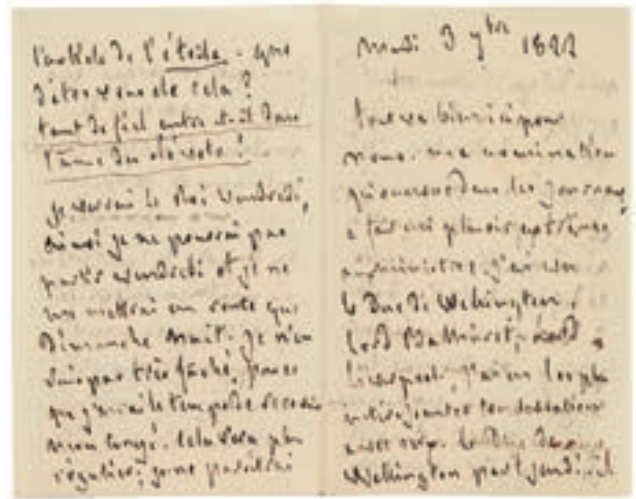 l'article de l'étoile - que
dites vous de cela ?
tant de fiel entre-t-il dans
l'âme des dévots !
je verrai le Roi vendredi,
ainsi je ne pourrai pas
partir vendredi et je ne
me mettrai en route que
Dimanche matin. Je n'en
suis pas très fâché, parce
que j'aurai le temps de recevoir
mon congé. Cela sera plus
régulier; je ne paraîtrai
mardi 3 7bre 1822
tout va bien ici pour
nous. ma nomination
dans les journaux
a fait un plaisir extrême
ministres. j'ai vu
le Duc de Wellington,
Lord Bathurst, Lord
Liverpool. j'ai eu les plus
conversations
avec Le Duc de
Wellington part jeudi, il